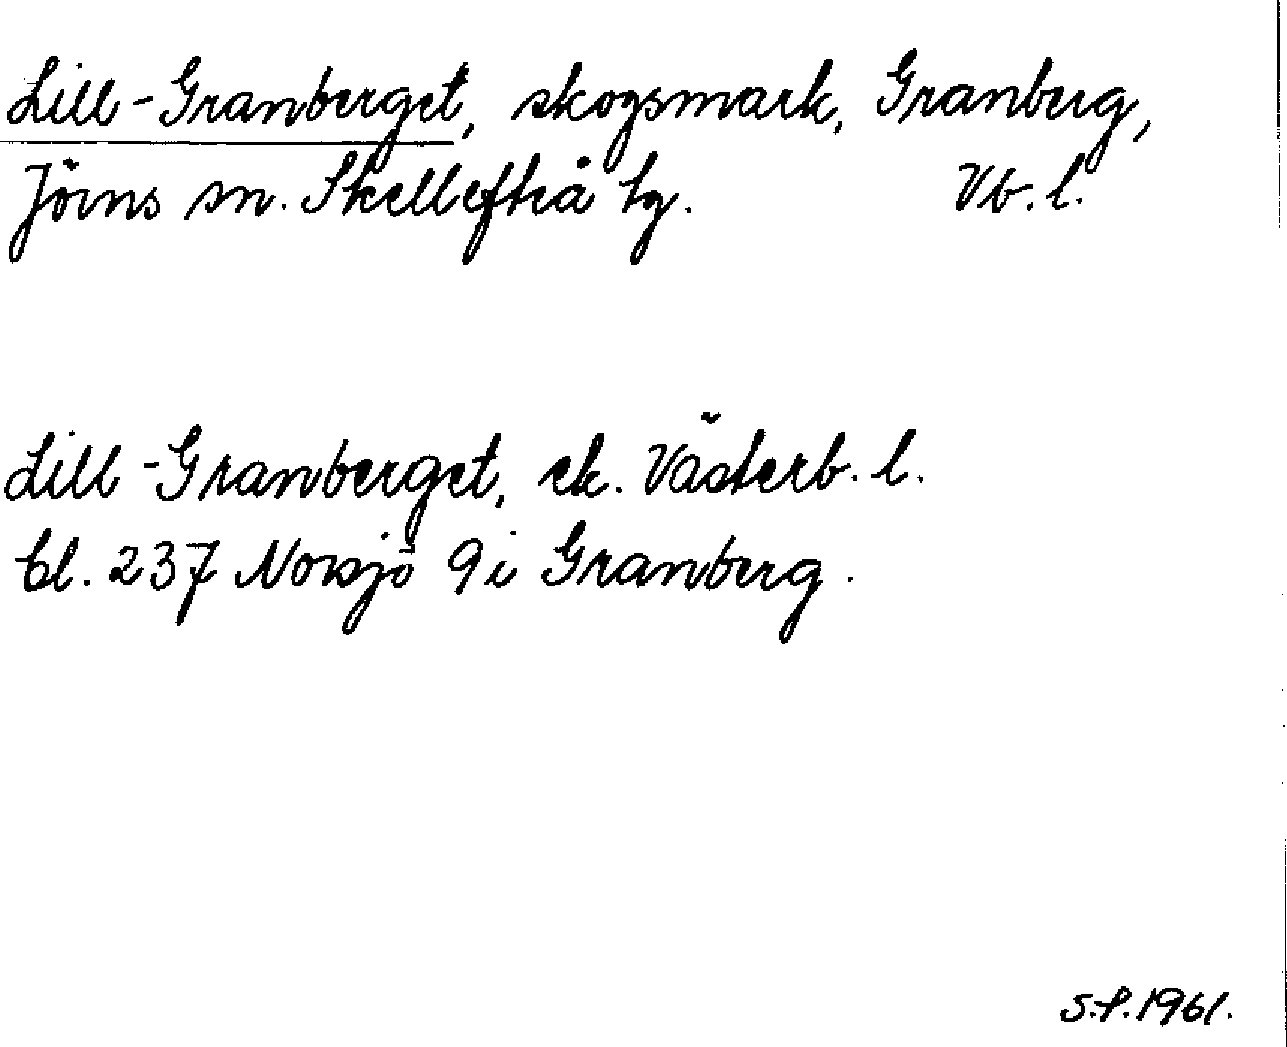 Lill-Granberget, skogsmark, Granberg,
Jörns sn. Skellefteå tg. Vb. l.
Lill-Granberget, ek. Västerb. l.
bl. 237 Norsjö 9 i Granberg.
S.P. 1961.